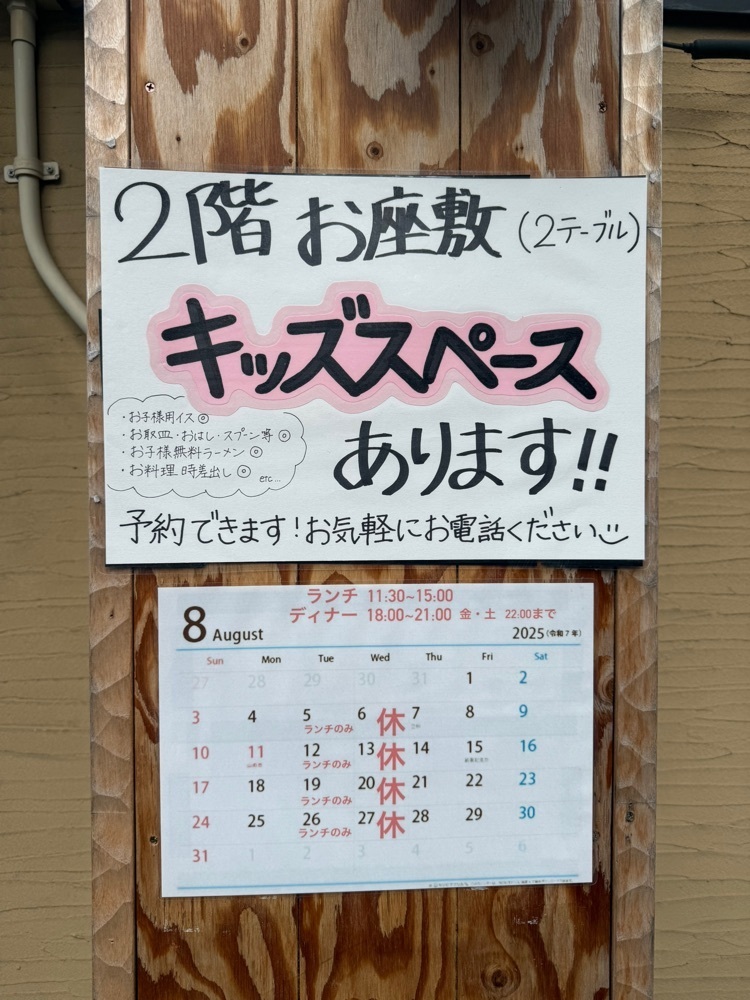 2階 お座敷 (2テーブル)
キッズスペース
・お子様用イス◎
・お取皿・おはし・スプーン等◎
・お子様無料ラーメン◎
・お料理 時差出し◎
etc...
あります!!
予約できます!お気軽にお電話ください
ランチ 11:30~15:00
ディナー 18:00~21:00 金・土 22:00まで
8 August 2025(令和7年)
Sun Mon Tue Wed Thu Fri Sat
27 28 29 30 31 1 2
3 4 5 6 休 7 8 9
ランチのみ
10 11 12 13 休 14 15 16
ランチのみ
17 18 19 20 休 21 22 23
ランチのみ
24 25 26 27 休 28 29 30
ランチのみ
31 1 2 3 4 5 6